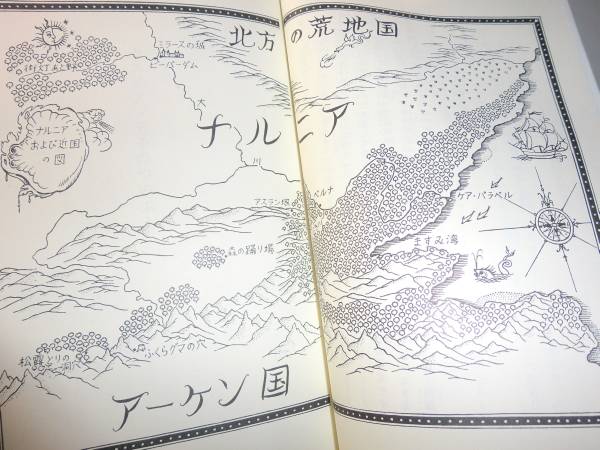 北方の荒地国
ミラースの城
ビーバーダム
街灯あと野
ナルニア
および近国
の図
大
川
ナルニア
ベルナ
アスラン塚
ケア・パラベル
ますみ湾
森の踊り場
松露とりの
洞穴
ふくらグマの穴
アーケン国